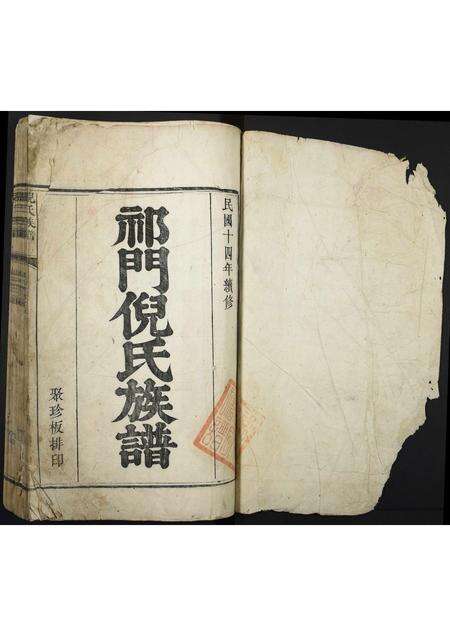 民國十四年續修
祁門倪氏族譜
聚珍板排印
倪氏族譜